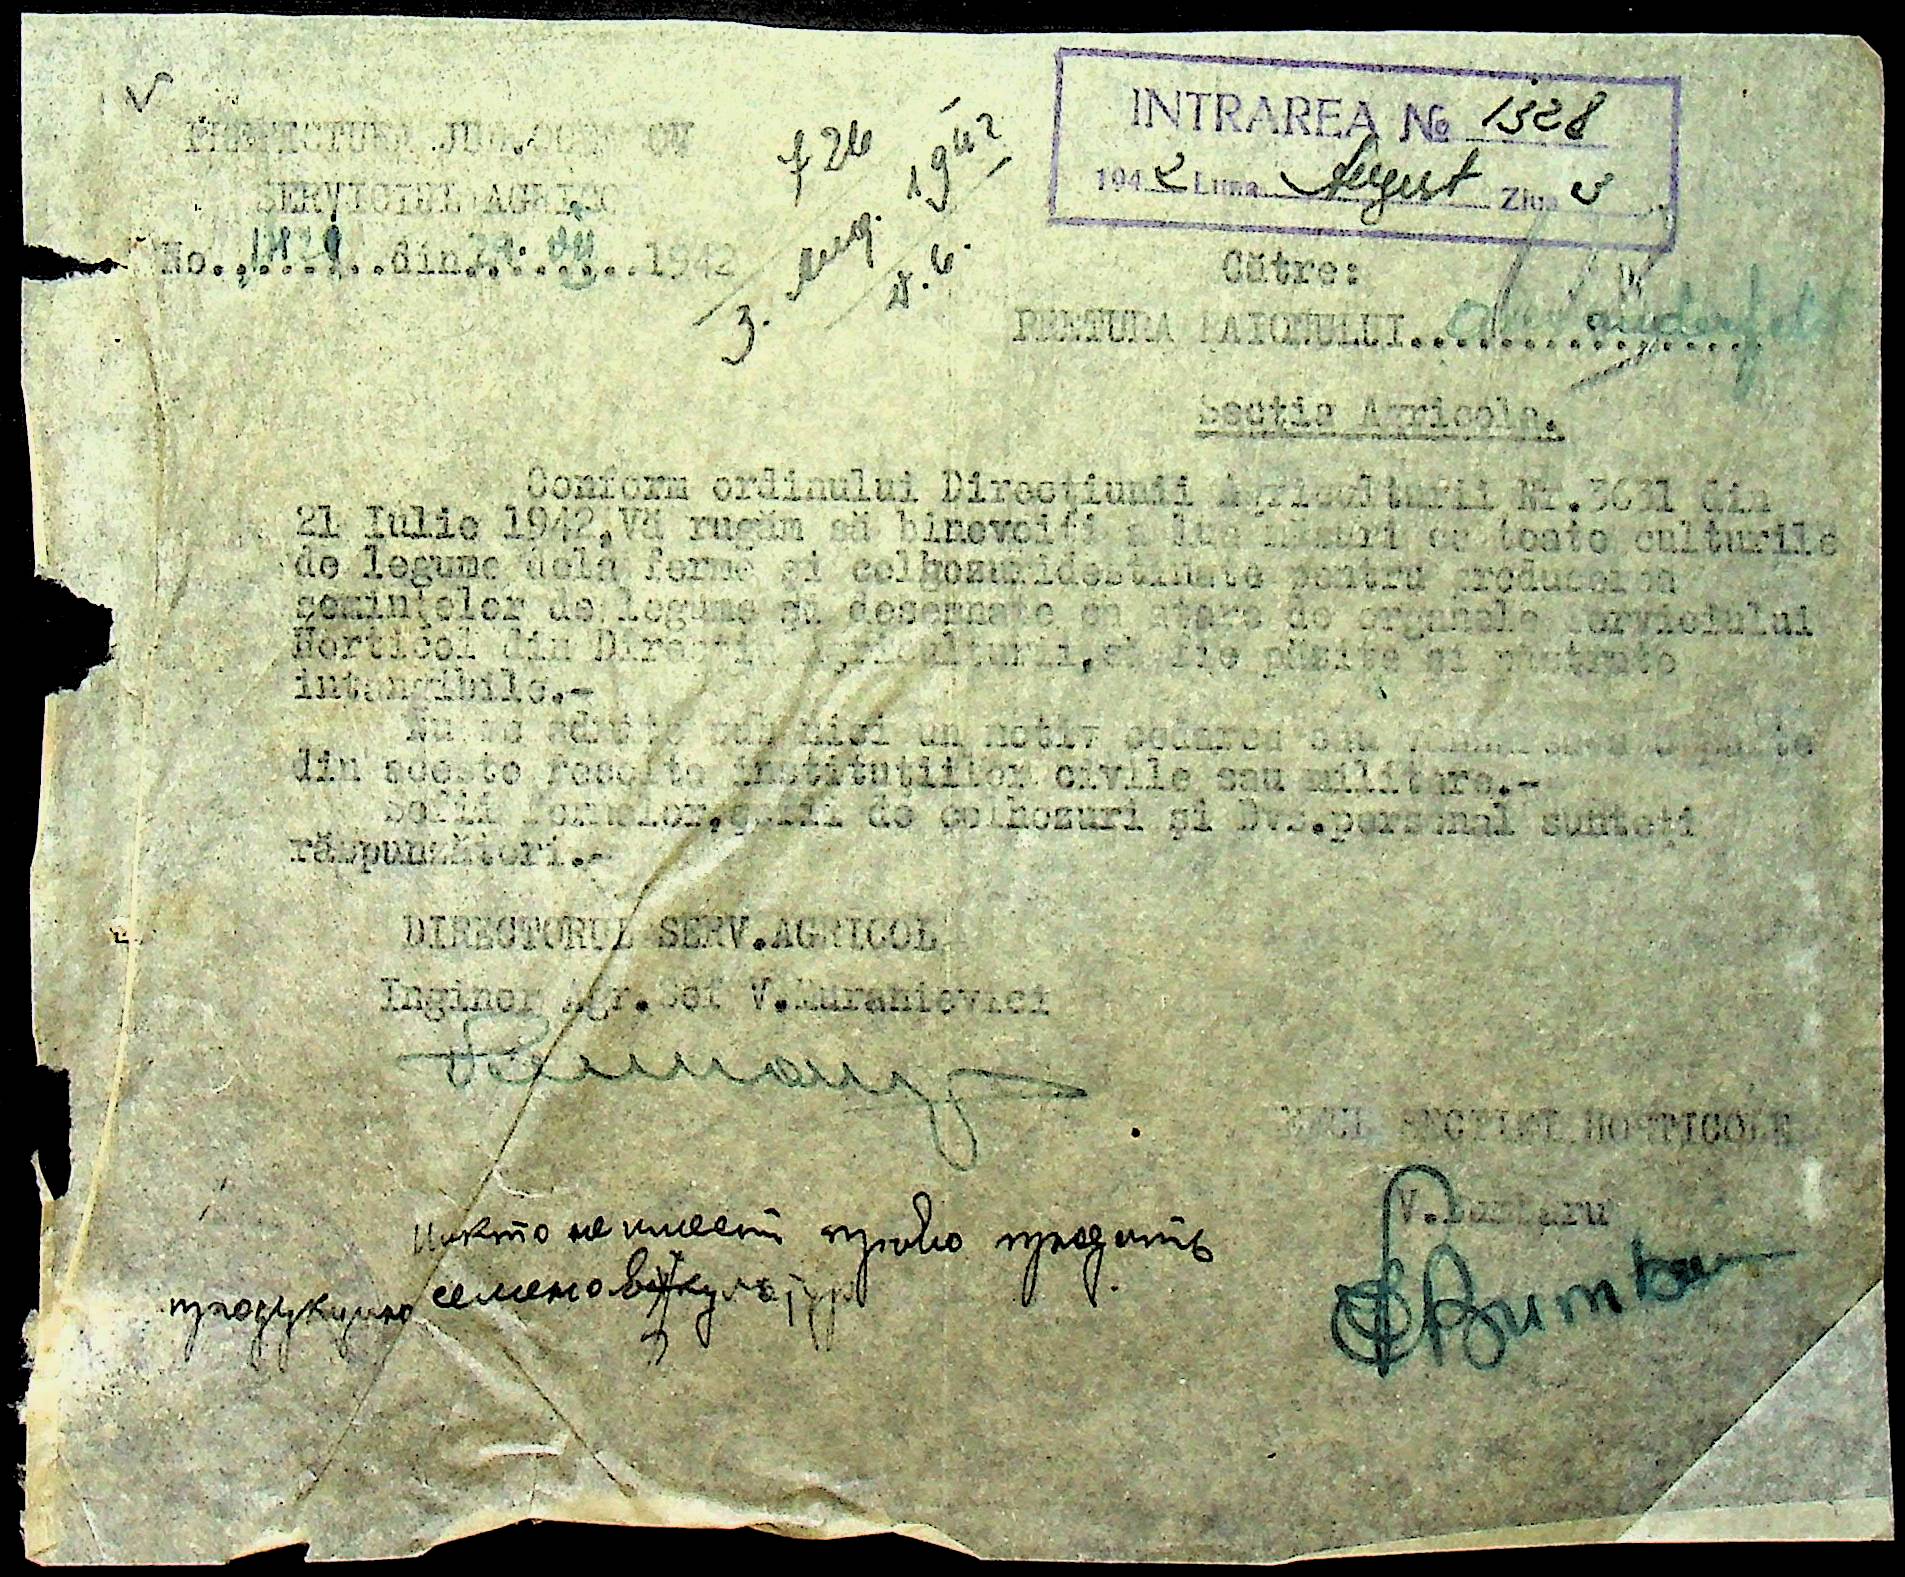 INTRAREA № 1328
1942 Luna August Ziua
PREFECTURA JUD. OCEACOV
SERVICIUL AGRICOL
No. din 1942
726
3. aug. 1942
Către:
PRETURA RAIONULUI
Secția Agricola.
Conform ordinului Direcțiunii Agriculturii Nr.3631 din
21 Iulie 1942, Vă rugăm să binevoiți a lua măsuri ca toate culturile
de legume dela ferme și colhozuri destinate pentru producerea
semințelor de legume și desemnate ca atare de organele Serviciului
Horticol din Direcția Agriculturii, să fie păzite și păstrate
intangibile.-
Nu se admite sub nici un motiv cedarea sau parte
din aceste recolte instituțiilor civile sau militare.-
Sefii fermelor, șefii de colhozuri și Dvs.personal sunteți
răspunzători.-
DIRECTORUL SERV.AGRICOL
Inginer Agr.Sef V.Muranievici
SEFUL SECTIEI HORTICOLE
V.
Никто не имеет право продать
продукцию семеновкультур